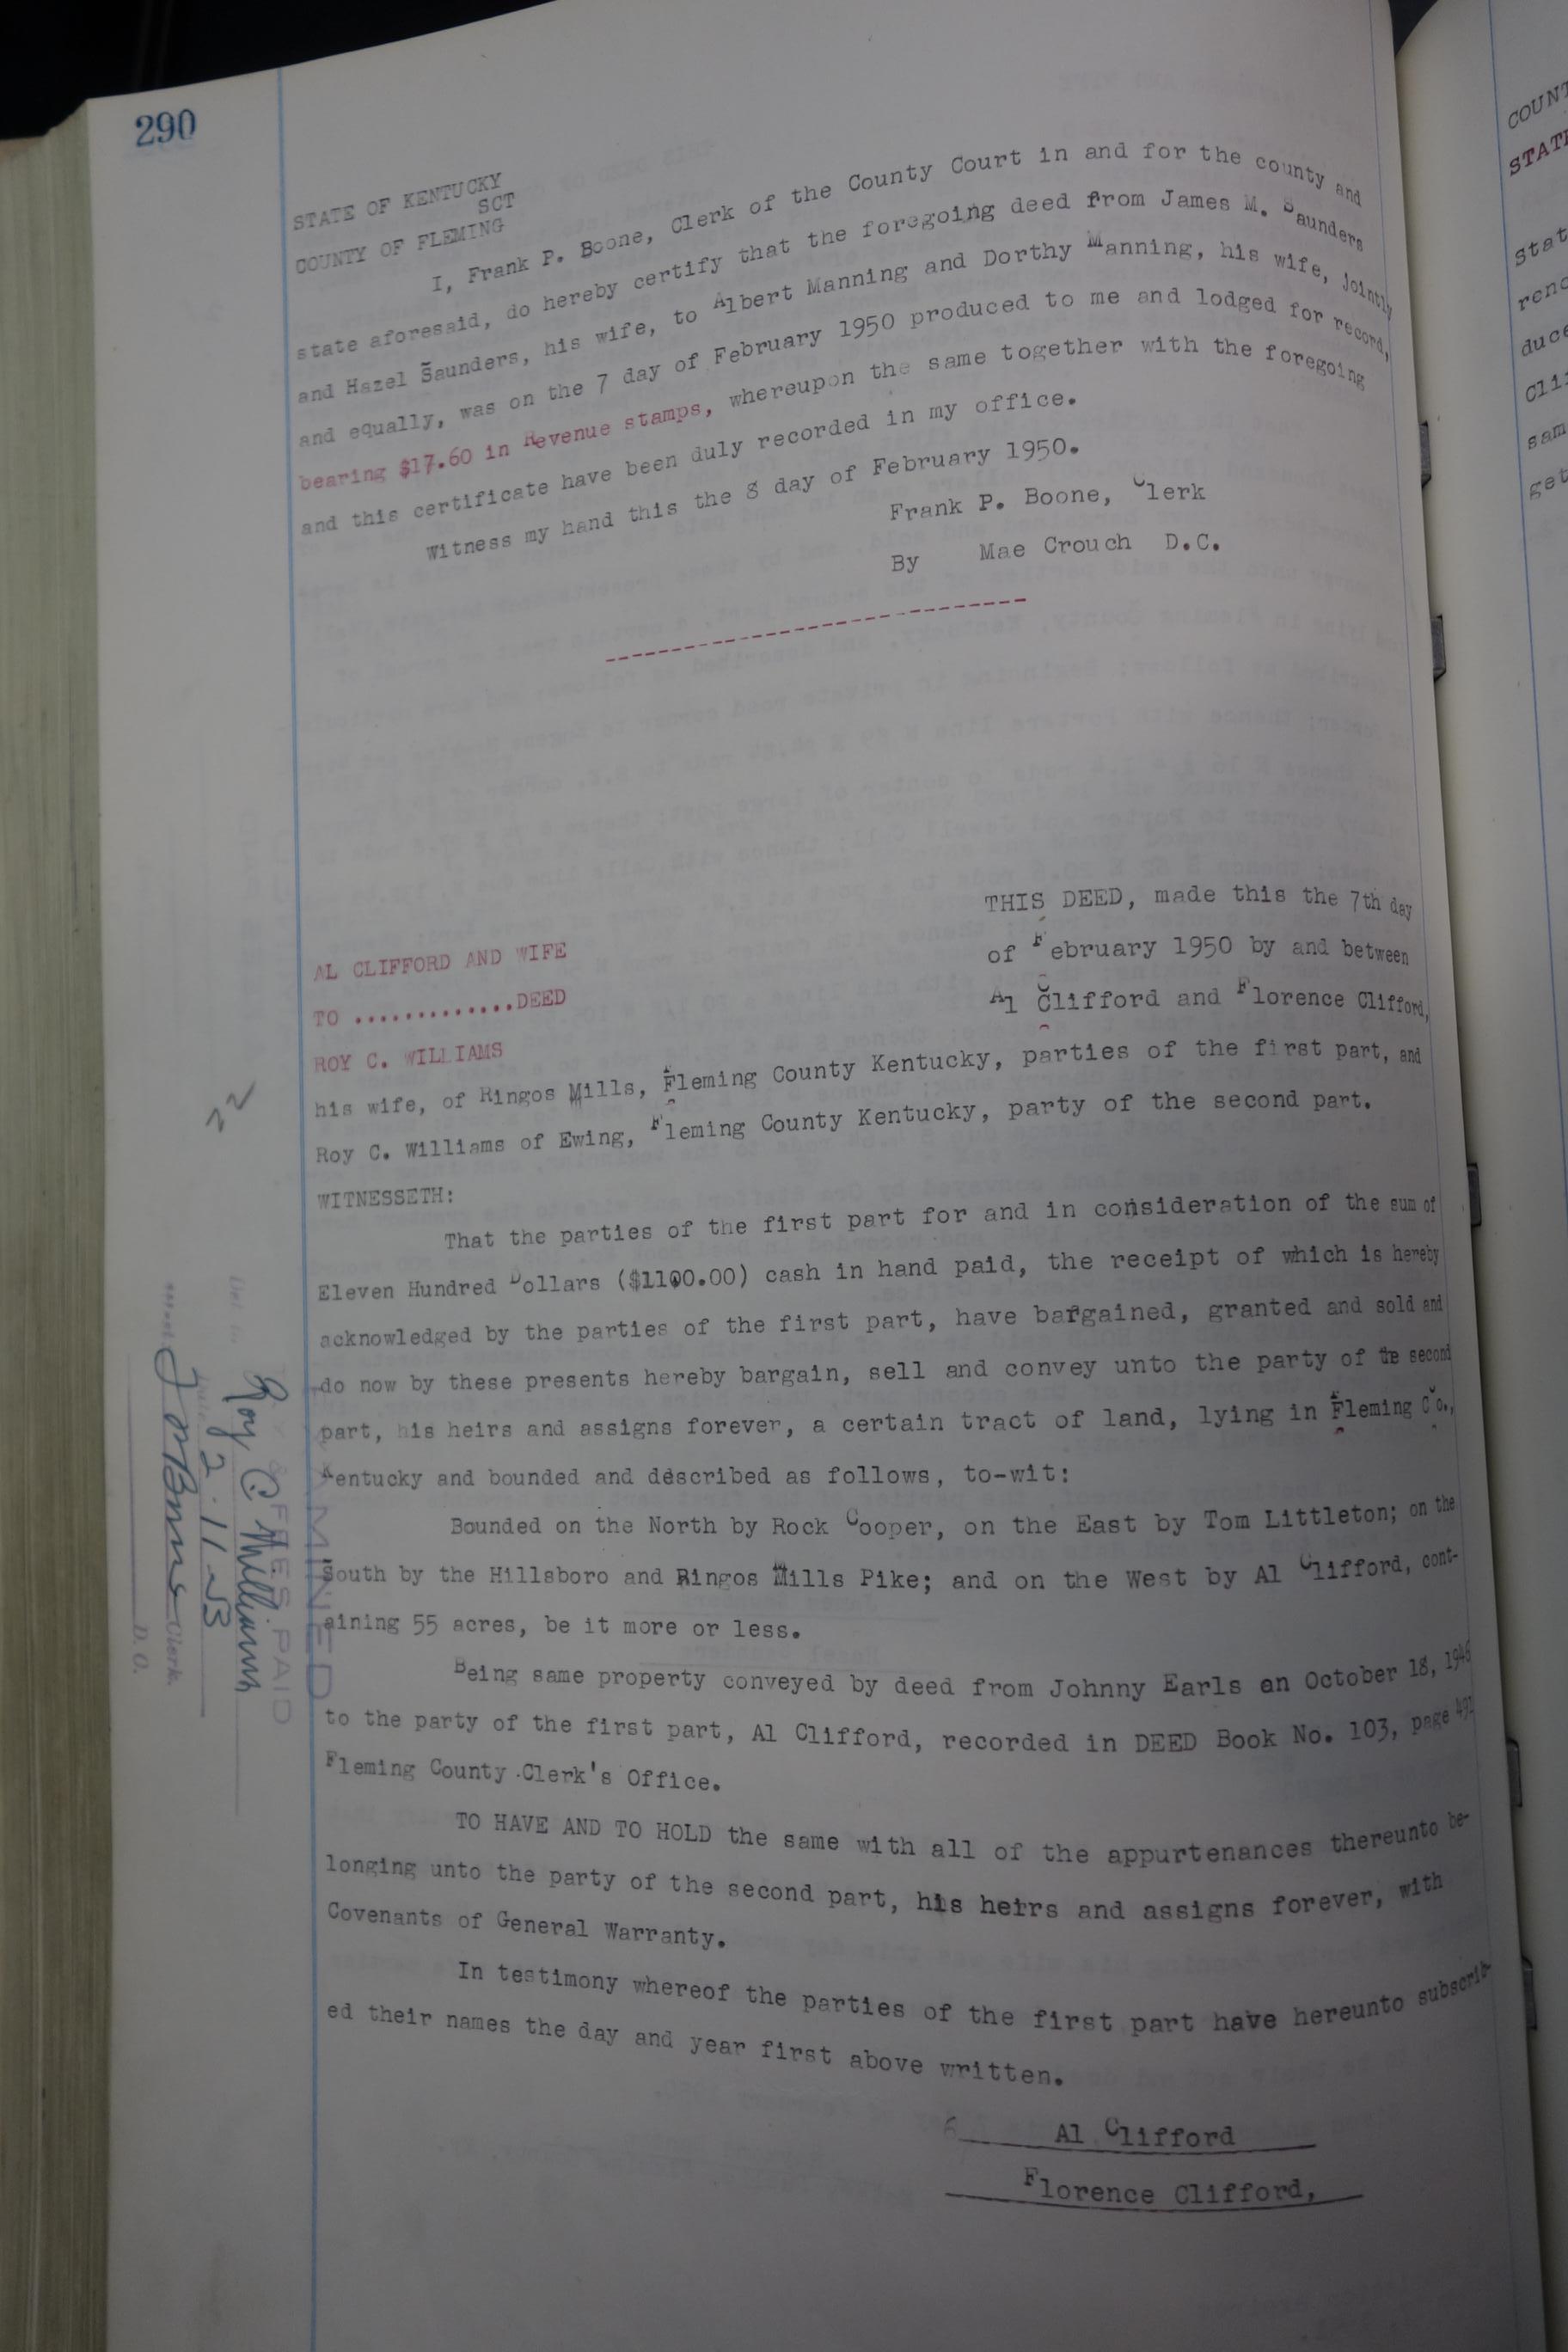 290
STATE OF KENTUCKY
SCT
COUNTY OF FLEMING
I, Frank P. Boone, Clerk of the County Court in and for the county and
state aforesaid, do hereby certify that the foregoing deed from James M. Saunders
and Hazel Saunders, his wife, to Albert Manning and Dorthy Manning, his wife, jointly
and equally, was on the 7 day of February 1950 produced to me and lodged for record,
bearing $17.60 in Revenue stamps, whereupon the same together with the foregoing
and this certificate have been duly recorded in my office.
Witness my hand this the 8 day of February 1950.
Frank P. Boone, Clerk
By Mae Crouch D.C.
AL CLIFFORD AND WIFE
TO .............DEED
ROY C. WILLIAMS
THIS DEED, made this the 7th day
of February 1950 by and between
Al Clifford and Florence Clifford,
his wife, of Ringos Mills, Fleming County Kentucky, parties of the first part, and
Roy C. Williams of Ewing, Fleming County Kentucky, party of the second part.
WITNESSETH:
That the parties of the first part for and in consideration of the sum of
Eleven Hundred Dollars ($1100.00) cash in hand paid, the receipt of which is hereby
acknowledged by the parties of the first part, have bargained, granted and sold and
do now by these presents hereby bargain, sell and convey unto the party of the second
part, his heirs and assigns forever, a certain tract of land, lying in Fleming Co.,
Kentucky and bounded and described as follows, to-wit:
Bounded on the North by Rock Cooper, on the East by Tom Littleton; on the
South by the Hillsboro and Ringos Mills Pike; and on the West by Al Clifford, cont-
aining 55 acres, be it more or less.
Being same property conveyed by deed from Johnny Earls on October 18, 1946
to the party of the first part, Al Clifford, recorded in DEED Book No. 103, page
Fleming County Clerk's Office.
TO HAVE AND TO HOLD the same with all of the appurtenances thereunto be-
longing unto the party of the second part, his heirs and assigns forever, with
Covenants of General Warranty.
In testimony whereof the parties of the first part have hereunto subscrib-
ed their names the day and year first above written.
Al Clifford
Florence Clifford,
22
EXAMINED
& FEES PAID
Roy C. Williams
2-11-53
Clerk.
D. C.
COUNT
STATE
stat
reno
duce
Clif
sam
get